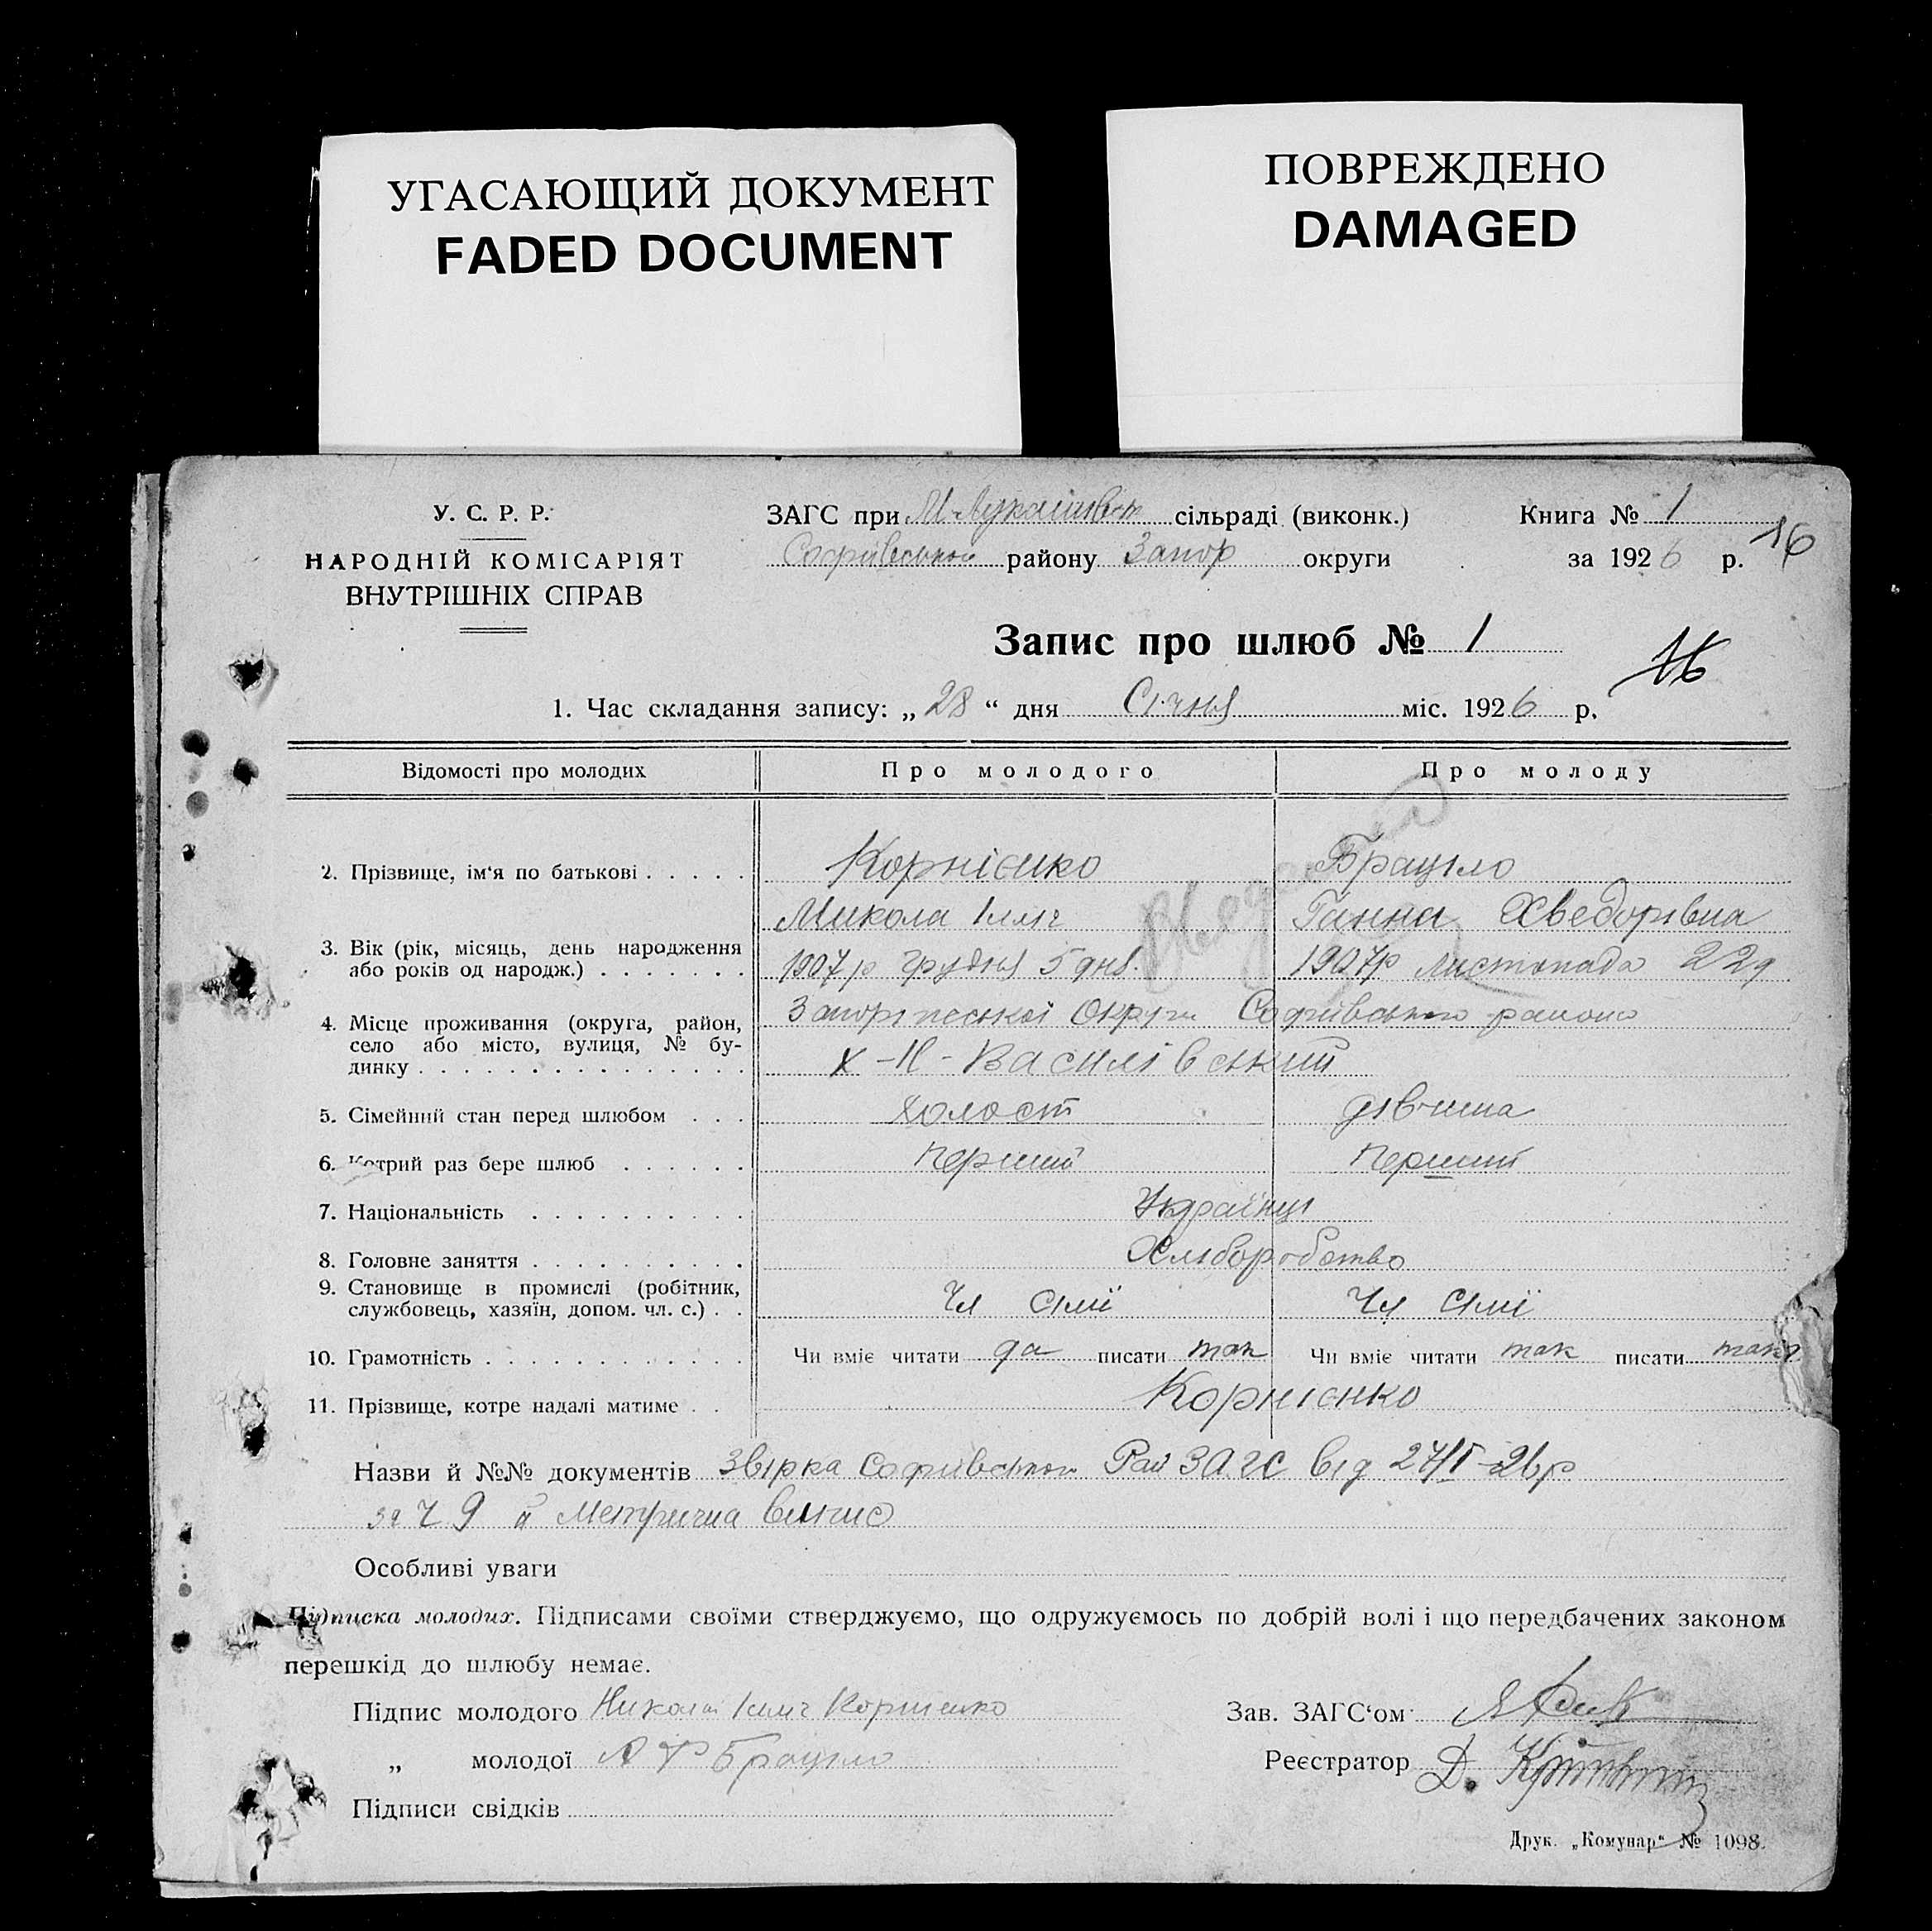 УГАСАЮЩИЙ ДОКУМЕНТ
FADED DOCUMENT
ПОВРЕЖДЕНО
DAMAGED
У. С. Р. Р.
НАРОДНІЙ КОМІСАРІЯТ
ВНУТРІШНІХ СПРАВ
ЗАГС при сільраді (виконк.)
Софіївської району Запор округи
Книга № 1
за 1926 р.
16
Запис про шлюб № 1
16
1. Час складання запису: „28“ дня Січня міс. 1926 р.
Відомості про молодих Про молодого Про молоду
2. Прізвище, ім‘я по батькові Корнієнко Брацило
Микола Ілліч Ганна Хведорівна
3. Вік (рік, місяць, день народження або років од народж.) 1907 р Грудня 5 дня. 1907р листопада 22д
4. Місце проживання (округа, район, село або місто, вулиця, № будинку Запоріжської Округи Софіївського района
х-Н-Василівський
5. Сімейний стан перед шлюбом холост дівчина
6. Котрий раз бере шлюб перший перший
7. Національність Українці
8. Головне заняття Хліборобство
9. Становище в промислі (робітник, службовець, хазяїн, допом. чл. с.) Чл сімї Чл сімї
10. Грамотність Чи вміє читати да писати так Чи вміє читати так писати так
11. Прізвище, котре надалі матиме Корнієнко
Назви й №№ документів Звірка Софіївської Рай ЗАГС від 27/I-26р
за Ч 9 й Метрична випис
Особливі уваги
Підписка молодих. Підписами своїми стверджуємо, що одружуємось по добрій волі і що передбачених законом
перешкід до шлюбу немає.
Підпис молодого Николай Ілич Корниенко
„ молодої А Ф Брацило
Підписи свідків
Зав. ЗАГС‘ом
Реєстратор Д.
Друк. „Комунар“ № 1098.